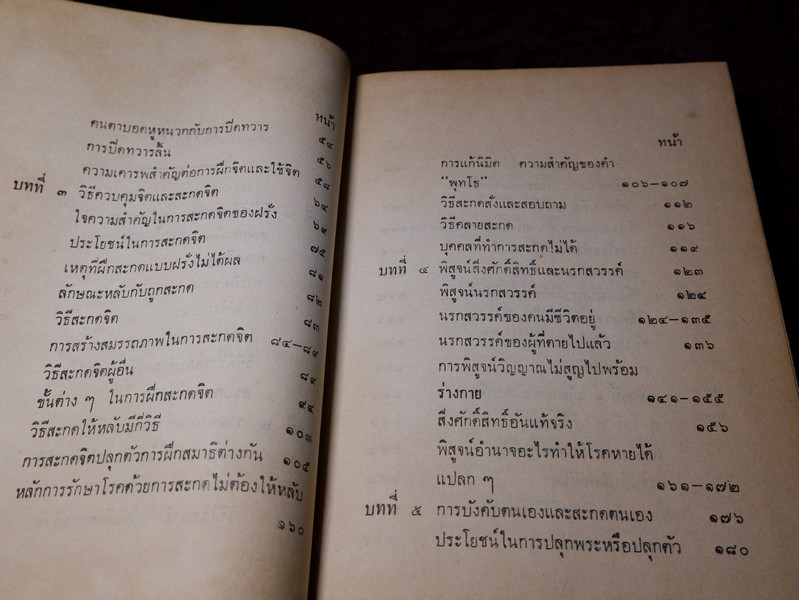 หน้า
คนตาบอดหูหนวกกับการปิดทวาร ๕๔
การปิดทวารลิ้น ๕๖
ความเคารพสำคัญต่อการฝึกจิตและใช้จิต ๕๘
บทที่ ๓ วิธีควบคุมจิตและสะกดจิต ๖๔
ใจความสำคัญในการสะกดจิตของฝรั่ง ๖๙
ประโยชน์ในการสะกดจิต ๗๕
เหตุที่ฝึกสะกดแบบฝรั่งไม่ได้ผล ๘๑
ลักษณะหลับกับถูกสะกด ๘๒
วิธีสะกดจิต ๘๓
การสร้างสมรรถภาพในการสะกดจิต ๘๔—๘๙
วิธีสะกดจิตผู้อื่น ๘๙
ขั้นต่าง ๆ ในการฝึกสะกดจิต ๙๔
วิธีสะกดให้หลับมีกี่วิธี ๑๐๓
การสะกดจิตปลุกตัวการฝึกสมาธิต่างกัน ๑๐๕
หลักการรักษาโรคด้วยการสะกดไม่ต้องให้หลับ
๑๖๐
หน้า
การแก้นิมิต ความสำคัญของคำ
“พุทโธ” ๑๐๖—๑๐๗
วิธีสะกดสั่งและสอบถาม ๑๑๒
วิธีคลายสะกด ๑๑๖
บุคคลที่ทำการสะกดไม่ได้ ๑๑๙
บทที่ ๔ พิสูจน์สิ่งศักดิ์สิทธิ์และนรกสวรรค์ ๑๒๓
พิสูจน์นรกสวรรค์ ๑๒๔
นรกสวรรค์ของคนมีชีวิตอยู่ ๑๒๔—๑๓๕
นรกสวรรค์ของผู้ที่ตายไปแล้ว ๑๓๖
การพิสูจน์วิญญาณไม่สูญไปพร้อม
ร่างกาย ๑๔๑—๑๕๕
สิ่งศักดิ์สิทธิ์อันแท้จริง ๑๕๖
พิสูจน์อำนาจอะไรทำให้โรคหายได้
แปลก ๆ ๑๖๑—๑๗๒
บทที่ ๕ การบังคับตนเองและสะกดตนเอง ๑๗๖
ประโยชน์ในการปลุกพระหรือปลุกตัว ๑๘๐